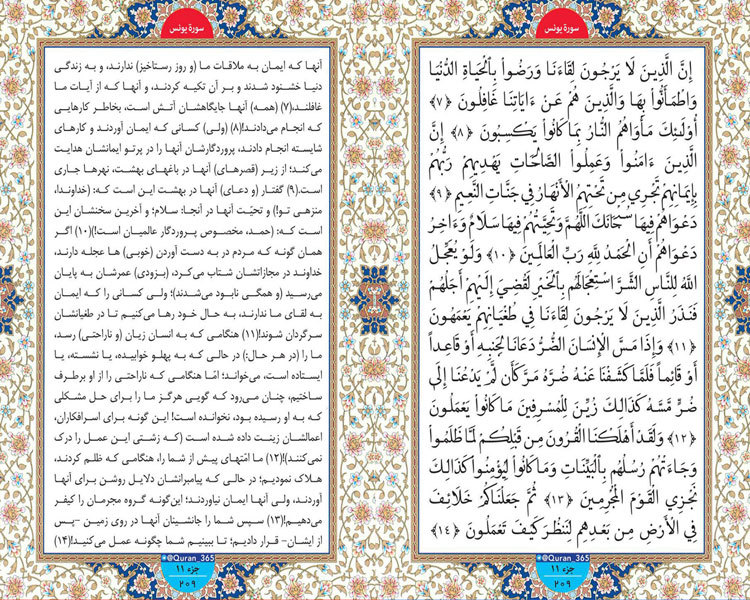 سورة یونس
إِنَّ الَّذِينَ لَا يَرْجُونَ لِقَاءَنَا وَرَضُوا بِالْحَيَاةِ الدُّنْيَا
وَاطْمَأَنُّوا بِهَا وَالَّذِينَ هُمْ عَنْ ءَايَاتِنَا غَافِلُونَ ﴿٧﴾
أُولَئِكَ مَأْوَاهُمُ النَّارُ بِمَا كَانُوا يَكْسِبُونَ ﴿٨﴾ إِنَّ
الَّذِينَ ءَامَنُوا وَعَمِلُوا الصَّالِحَاتِ يَهْدِيهِمْ رَبُّهُمْ
بِإِيمَانِهِمْ تَجْرِي مِن تَحْتِهِمُ الْأَنْهَارُ فِي جَنَّاتِ النَّعِيمِ ﴿٩﴾
دَعْوَاهُمْ فِيهَا سُبْحَانَكَ اللَّهُمَّ وَتَحِيَّتُهُمْ فِيهَا سَلَامٌ وَءَاخِرُ
دَعْوَاهُمْ أَنِ الْحَمْدُ لِلَّهِ رَبِّ الْعَالَمِينَ ﴿١٠﴾ وَلَوْ يُعَجِّلُ
اللَّهُ لِلنَّاسِ الشَّرَّ اسْتِعْجَالَهُم بِالْخَيْرِ لَقُضِيَ إِلَيْهِمْ أَجَلُهُمْ
فَنَذَرُ الَّذِينَ لَا يَرْجُونَ لِقَاءَنَا فِي طُغْيَانِهِمْ يَعْمَهُونَ
﴿١١﴾ وَإِذَا مَسَّ الْإِنسَانَ الضُّرُّ دَعَانَا لِجَنبِهِ أَوْ قَاعِدًا
أَوْ قَائِمًا فَلَمَّا كَشَفْنَا عَنْهُ ضُرَّهُ مَرَّ كَأَن لَّمْ يَدْعُنَا إِلَى
ضُرٍّ مَّسَّهُ كَذَلِكَ زُيِّنَ لِلْمُسْرِفِينَ مَا كَانُوا يَعْمَلُونَ
﴿١٢﴾ وَلَقَدْ أَهْلَكْنَا الْقُرُونَ مِن قَبْلِكُمْ لَمَّا ظَلَمُوا
وَجَاءَتْهُمْ رُسُلُهُم بِالْبَيِّنَاتِ وَمَا كَانُوا لِيُؤْمِنُوا كَذَلِكَ
نَجْزِي الْقَوْمَ الْمُجْرِمِينَ ﴿١٣﴾ ثُمَّ جَعَلْنَاكُمْ خَلَائِفَ
فِي الْأَرْضِ مِن بَعْدِهِمْ لِنَنظُرَ كَيْفَ تَعْمَلُونَ ﴿١٤﴾
@Quran_365
جزء ۱۱
۲۰۹
سورة یونس
آنها که ایمان به ملاقات ما (و روز رستاخیز) ندارند، و به زندگی
دنیا خشنود شدند و بر آن تکیه کردند، و آنها که از آیات ما
غافلند،(۷) (همه) آنها جایگاهشان آتش است، بخاطر کارهایی
که انجام می‌دادند!(۸) (ولی) کسانی که ایمان آوردند و کارهای
شایسته انجام دادند، پروردگارشان آنها را در پرتو ایمانشان هدایت
می‌کند؛ از زیر (قصرهای) آنها در باغهای بهشت، نهرها جاری
است.(۹) گفتار (و دعای) آنها در بهشت این است که: (خداوندا،
منزهی تو!) و تحیّت آنها در آنجا: سلام؛ و آخرین سخنشان این
است که: (حمد، مخصوص پروردگار عالمیان است!)(۱۰) اگر
همان گونه که مردم در به دست آوردن (خوبی) ها عجله دارند،
خداوند در مجازاتشان شتاب می‌کرد، (بزودی) عمرشان به پایان
می‌رسید (و همگی نابود می‌شدند)؛ ولی کسانی را که ایمان
به لقای ما ندارند، به حال خود رها می‌کنیم تا در طغیانشان
سرگردان شوند!(۱۱) هنگامی که به انسان زیان (و ناراحتی) رسد،
ما را (در هر حال:) در حالی که به پهلو خوابیده، یا نشسته، یا
ایستاده است، می‌خواند؛ امّا هنگامی که ناراحتی را از او برطرف
ساختیم، چنان می‌رود که گویی هرگز ما را برای حل مشکلی
که به او رسیده بود، نخوانده است! این گونه برای اسرافکاران،
اعمالشان زینت داده شده است (که زشتی این عمل را درک
نمی‌کنند)!(۱۲) ما امّتهای پیش از شما را، هنگامی که ظلم کردند،
هلاک نمودیم؛ در حالی که پیامبرانشان دلایل روشن برای آنها
آوردند، ولی آنها ایمان نیاوردند؛ این‌گونه گروه مجرمان را کیفر
می‌دهیم!(۱۳) سپس شما را جانشینان آنها در روی زمین -پس
از ایشان- قرار دادیم؛ تا ببینیم شما چگونه عمل می‌کنید!(۱۴)
@Quran_365
جزء ۱۱
۲۰۹